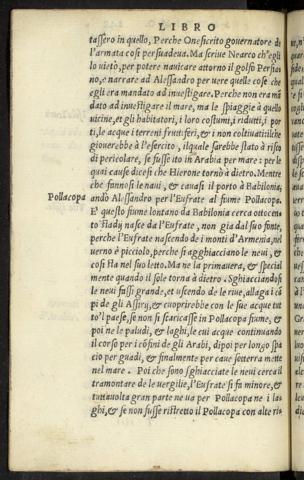 LIBRO
tassero in quello, Perche Onesicrito gouernatore de
l'armata cosi persuadeua. Ma scriue Nearco ch'egli
lo uietò, per potere nauicare attorno il golfo Persia
no, e narrare ad Alessandro per uere quelle cose che
egli era mandato ad inuestigare. Perche non era mā
dato ad inuestigare il mare, ma le spiaggie à quello
uicine, et gli habitatori, i loro costumi, i ridutti, i por
ti, le acque i terreni fruttiferi, & i non coltiuati: il che
giouerebbe à l'esercito, il quale sarebbe stato à risco
di pericolare, se fusse ito in Arabia per mare: per le
quai cause dicesi che Hierone tornò à dietro. Mentre
che fannosi le naui, & cauasi il porto à Babilonia,
Pollacopa
andò Alessandro per l'Eufrate al fiume Pollacopa.
E' questo fiume lontano da Babilonia cerca ottocen
to stadij nasce da l'Eufrate, non gia dal suo fonte,
perche l'Eufrate nascendo de i monti d'Armenia, nel
uerno è picciolo, perche si agghiacciano le neui, &
cosi sta nel suo letto. Ma ne la primauera, & special
mente quando il sole torna à dietro. Sghiacciandosi
le neui fassi grande, et uscendo de le riue, allaga i cā
pi de gli Assirij, & cuoprirebbe con le sue acque tut
to'l paese, se non si scaricasse in Pollacopa fiume, &
poi ne le paludi, & laghi, le cui acque continuando
il corso per i cōfini de gli Arabi, dipoi per longo spa
cio per guadi, & finalmente per caue sotterra mette
nel mare. Poi che sono sghiacciate le neui cerca il
tramontare de le uergilie, l'Eufrate si fa minore, &
tuttauolta gran parte ne ua per Pollacopa ne i la-
ghi, & se non fusse ristretto il Pollacopa con alte ri-